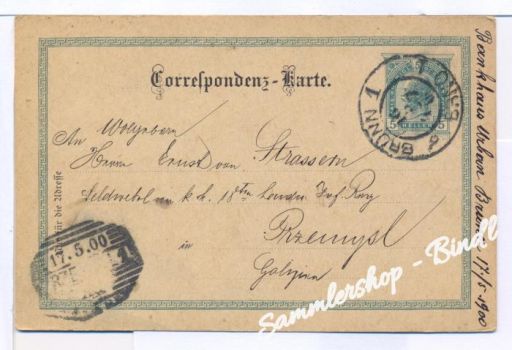 Correspondenz-Karte.
5 HELLER 5
BRÜNN 1
BRNO 1
An Wolgeborn
Herrn Ernst von Strassern
Feldwebel im k. k. 18ten Landw. Inf. Reg
Przemysl
in
Galizien
für die Adresse
17.5.00
Bankhaus Brünn 17/5 1900
Sammlershop - Bindl